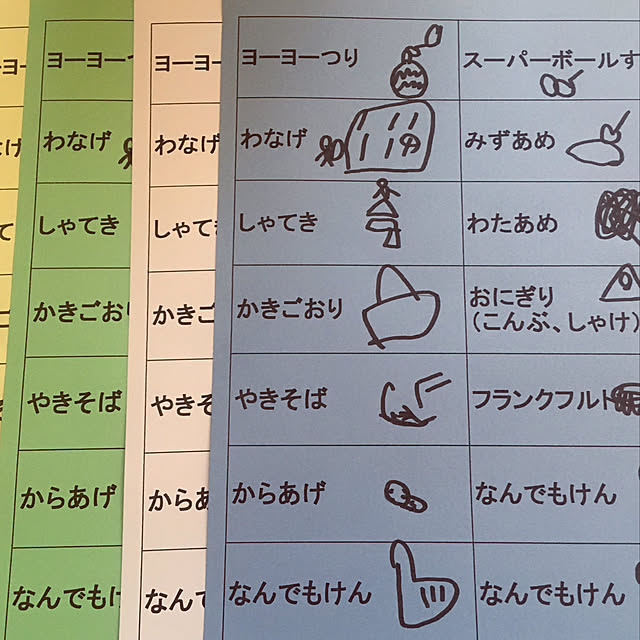 ヨーヨーつり
スーパーボールす
わなげ
みずあめ
しゃてき
わたあめ
かきごおり
おにぎり
(こんぶ、しゃけ)
やきそば
フランクフルト
からあげ
なんでもけん
なんでもけん
なんでもけん
ヨーヨー
わなげ
しゃてき
かきご
やきそ
からあ
なんて
ヨーヨー
わなげ
しゃてき
かきごお
やきそば
からあげ
なんでもけ